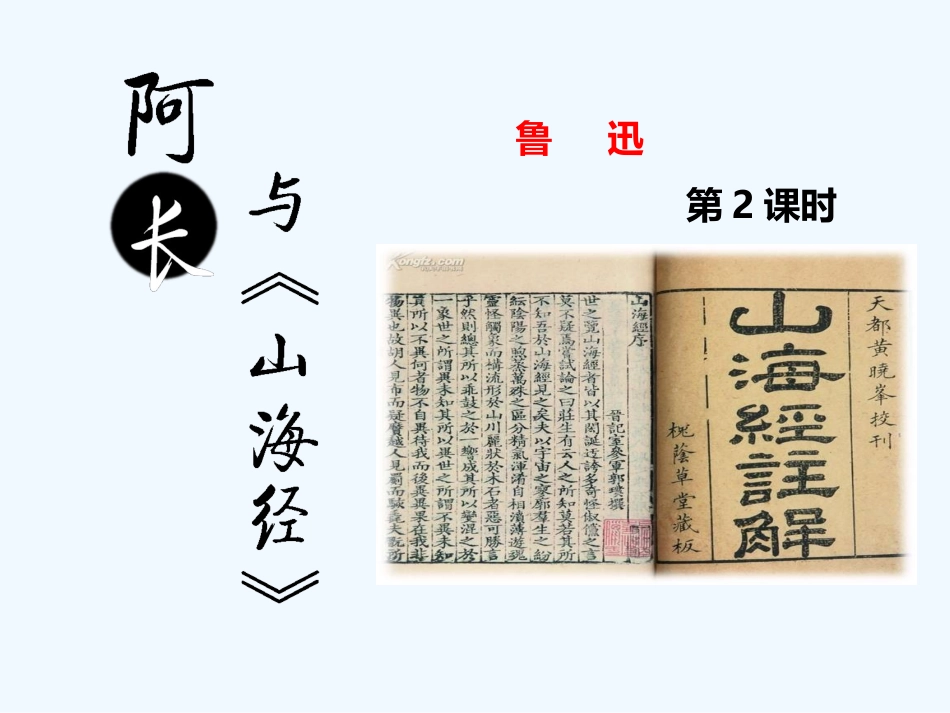 阿长与《山海经》
鲁 迅
第2课时
Kongfz.com
天都黃曉峯校刊
山海經註解
桃蔭草堂藏板
山海經序
晉記室參軍郭璞撰
世之覽山海經者皆以其閎誕迂誇多奇怪俶儻之言
莫不疑焉嘗試論之曰莊生有云人之所知莫若其所
不知吾於山海經見之矣夫以宇宙之寥廓羣生之紛
紜陰陽之煦蒸萬殊之區分精氣渾淆自相濆薄遊魂
靈怪觸象而構流形於山川麗狀於木石者惡可勝言
乎然則總其所以乖鼓之於一響成其所以變混之於
一象世之所謂異未知其所以異世之所謂不異未知
其所以不異何者物不自異待我而後異異果在我非
物異也故胡人見布而疑黂越人見罽而駭毳夫翫所